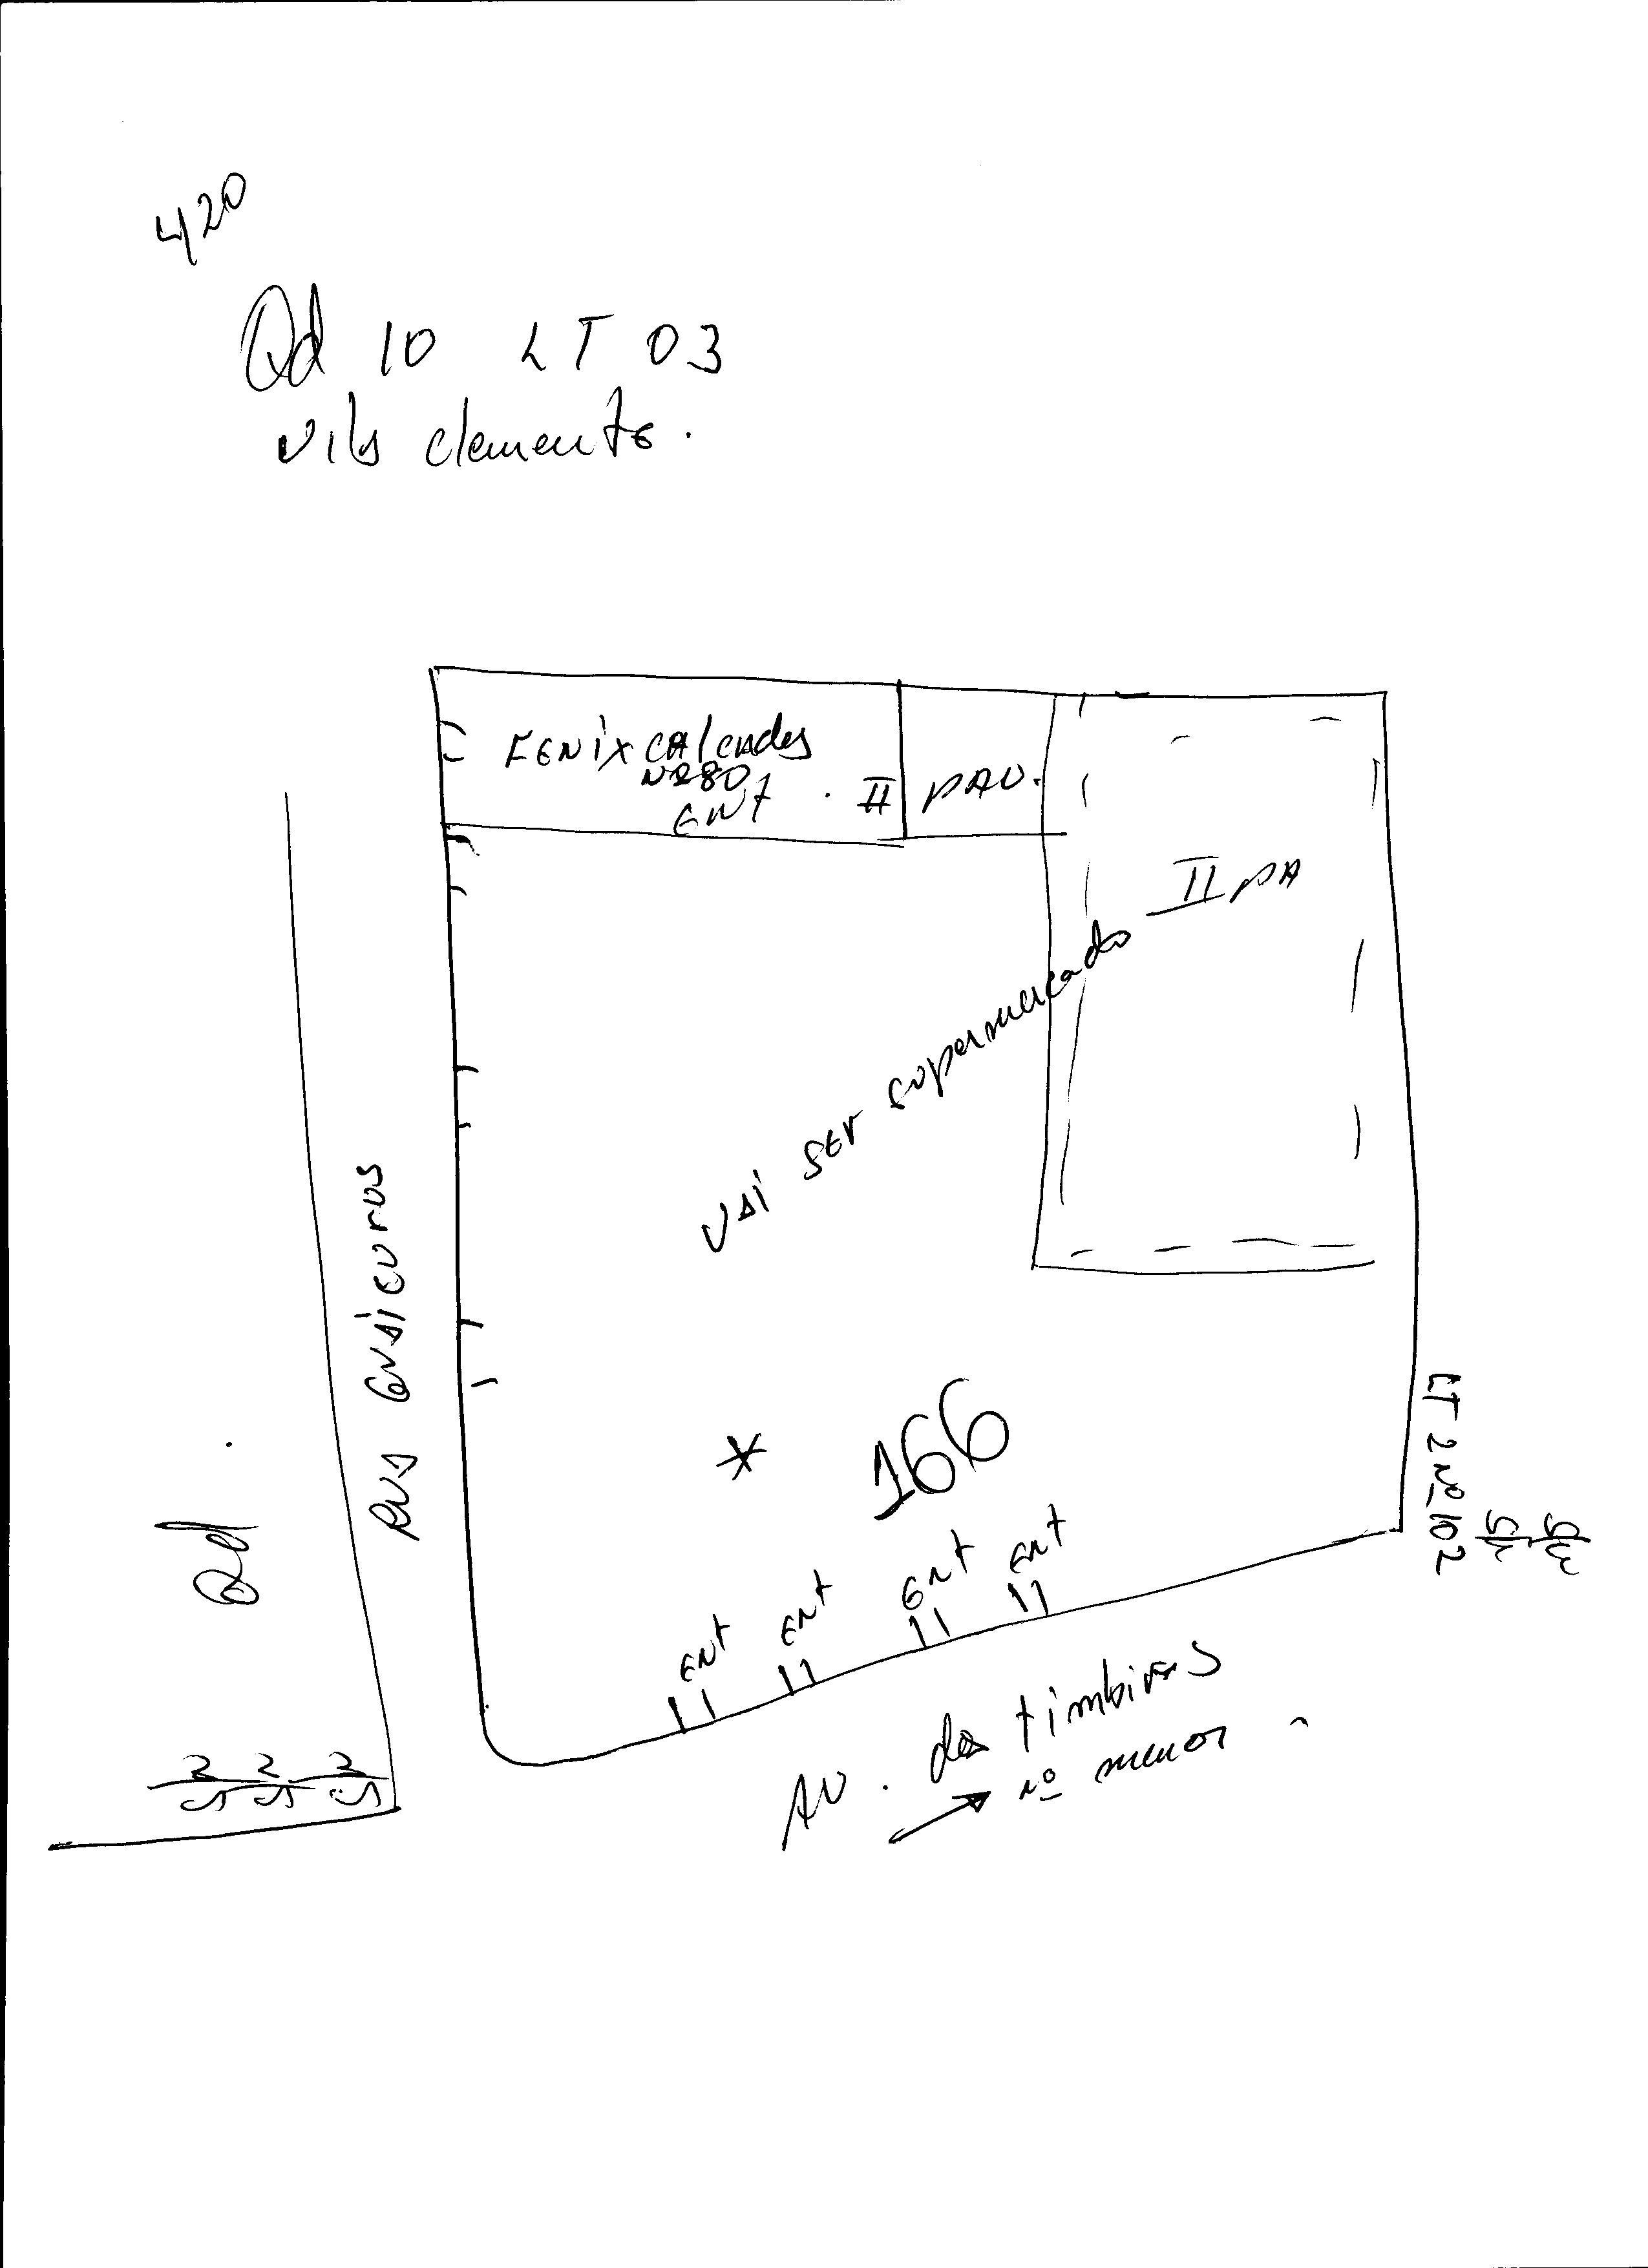 420
Qd 10 LT 03
vila clemente.
FENIX CAlcados
Nº 280
ENT . II PAV.
II PA
vai ser supermercado
Rua Guaicurus
Qd
* 166
LT 2 Nº 102
ENT ENT ENT ENT
AV. dos timbiras
→ nº menor